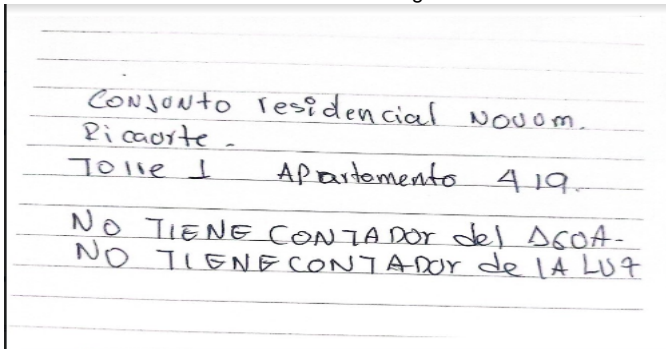 CONJUNTO residencial NOVUM.
Ricaurte.
Torre 1 Apartamento 419.
NO TIENE CONTADOR del AGUA.
NO TIENE CONTADOR de LA LUZ